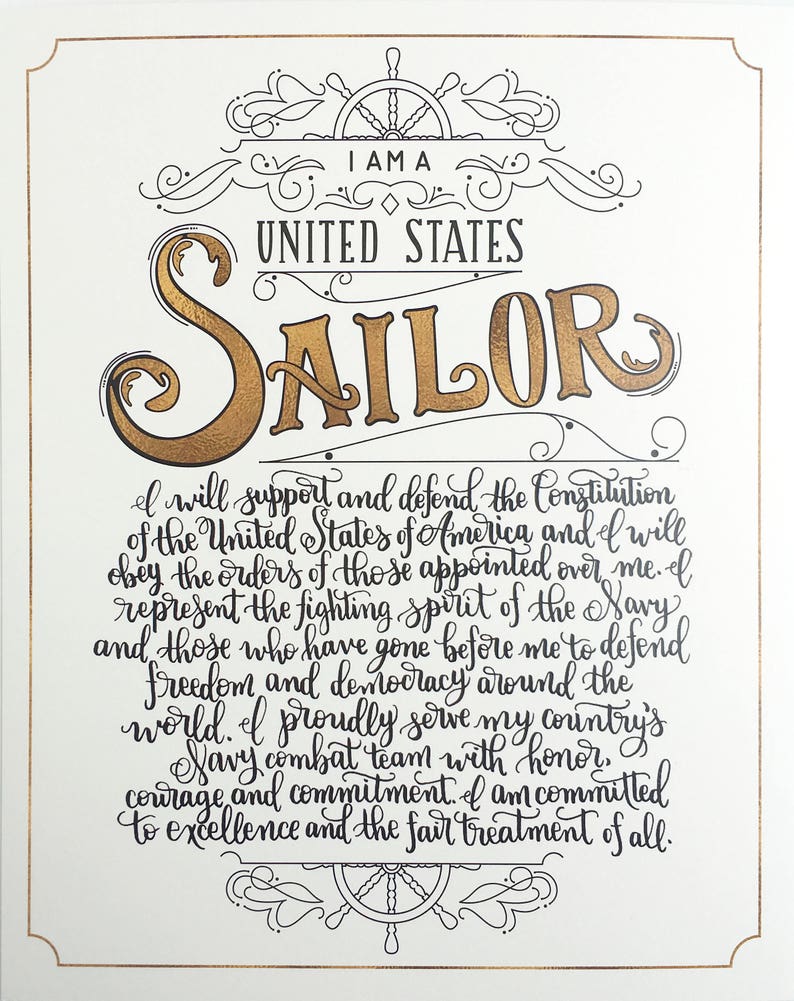 I AM A
UNITED STATES
SAILOR
I will support and defend the Constitution
of the United States of America and I will
obey the orders of those appointed over me. I
represent the fighting spirit of the Navy
and those who have gone before me to defend
freedom and democracy around the
world. I proudly serve my country's
Navy combat team with honor,
courage and commitment. I am committed
to excellence and the fair treatment of all.